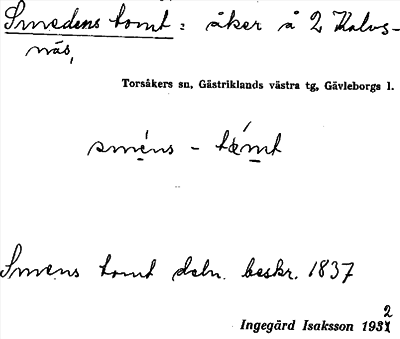 Smedens tomt: åker å 2 Kalvs-
näs,
Torsåkers sn, Gästriklands västra tg, Gävleborgs l.
sméns - tǽmt
Smens tomt deln. beskr. 1837
Ingegärd Isaksson 1932